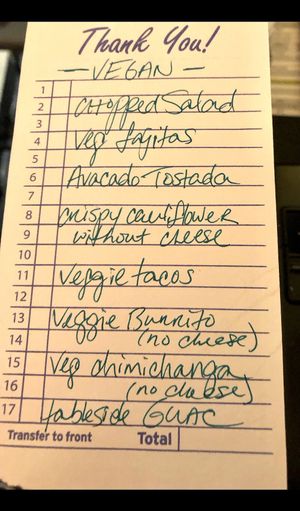 Thank You!
- VEGAN -
1
2 chopped Salad
3
4 Veg fajitas
5
6 Avacado Tostada
7
8 crispy cauliflower
9 without cheese
10
11 Veggie tacos
12
13 Veggie Burrito
14 (no cheese)
15 Veg chimichanga
16 (no cheese)
17 tableside GUAC
Transfer to front Total